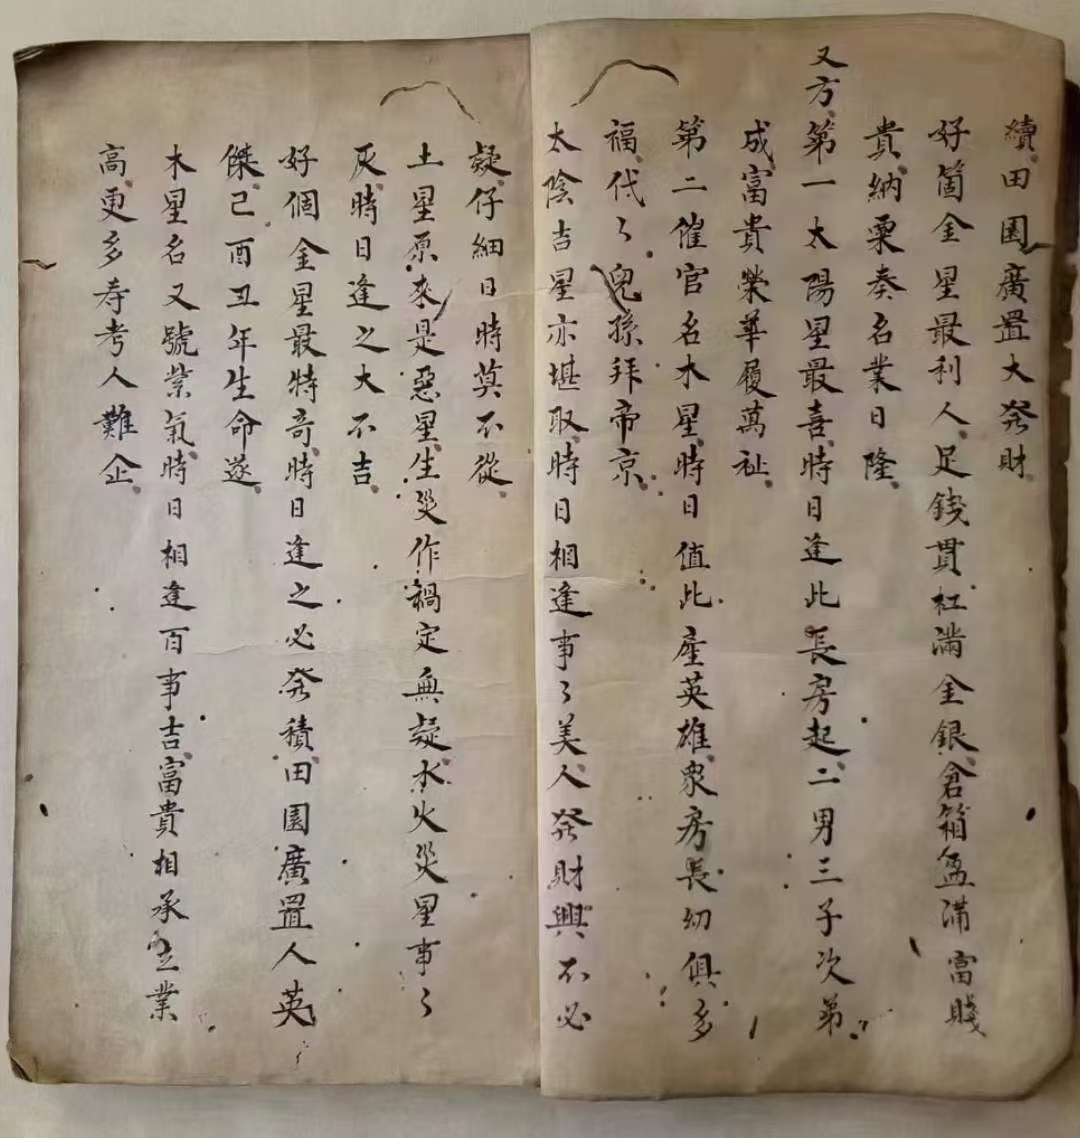 續田園廣置大発財
好箇金星最利人足錢貫杠滿金銀倉箱盈滿富賤
貴納粟奏名業日隆
又方第一太陽星最喜時日逢此長房起二男三子次弟
成富貴榮華履萬祉
第二催官名木星時日值此產英雄衆房長幼俱多
福代々兒孫拜帝京
太陰吉星亦堪取時日相逢事々美人発財興不必
疑仔細日時莫不從
土星原來是惡星生災作禍定無疑水火災星事々
灰時日逢之大不吉
好個金星最特奇時日逢之必発積田園廣置人英
傑己酉丑年生命遂
木星名又號紫氣時日相逢百事吉富貴相承立業
高更多寿考人難企